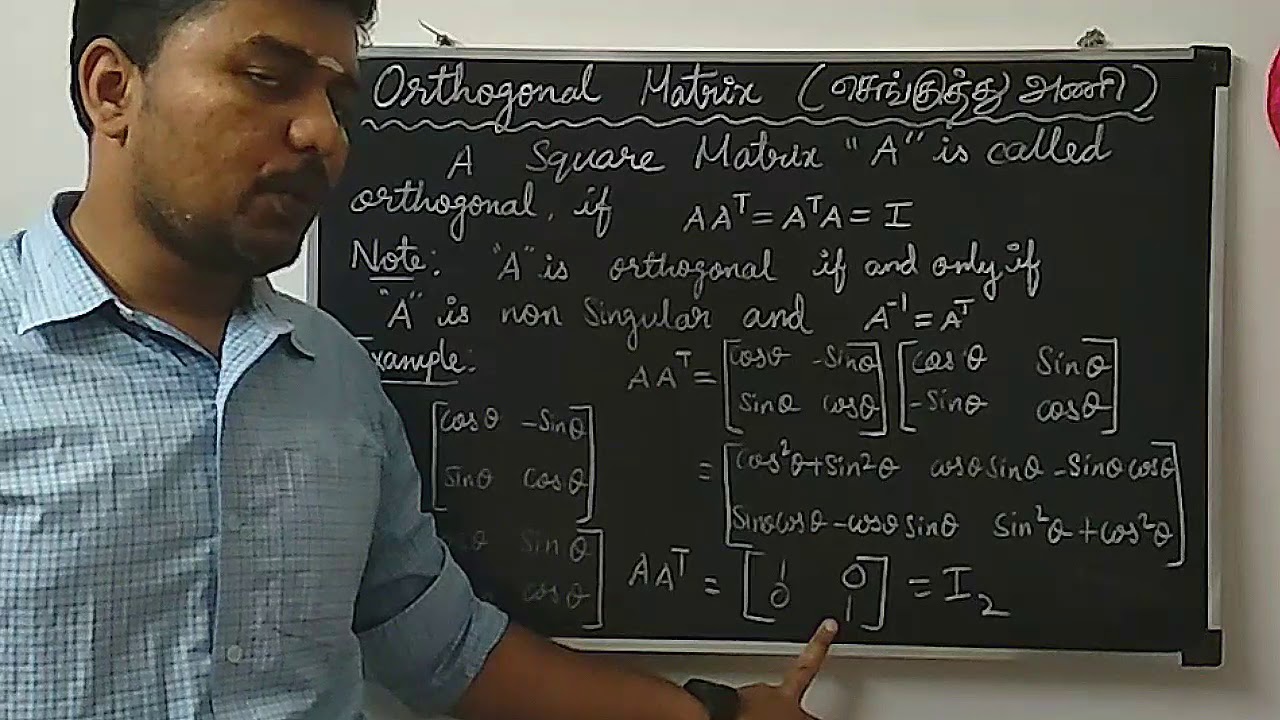 Orthogonal Matrix (செங்குத்து அணி)
A Square Matrix "A" is called
orthogonal, if AAᵀ = AᵀA = I
Note: "A" is orthogonal if and only if
"A" is non Singular and A⁻¹ = Aᵀ
Example:
[cosθ -Sinθ]
[sinθ cosθ]
Sinθ]
cosθ]
AAᵀ = [cosθ -Sinθ] [cosθ Sinθ]
[Sinθ cosθ] [-Sinθ cosθ]
= [cos²θ+Sin²θ cosθ Sinθ - Sinθ cosθ]
[Sinθcosθ - cosθ Sinθ Sin²θ + cos²θ]
AAᵀ = [1 0] = I₂
[0 1]